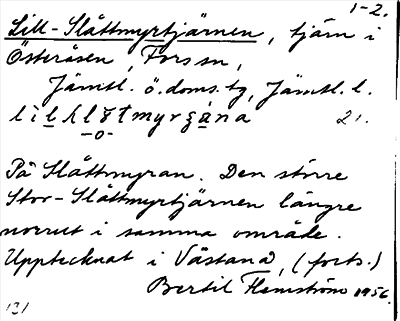 1-2.
Lill-Slåttmyrtjärnen, tjärn i
Österåsen, Fors sn,
Jämtl. ö. doms. tg, Jämtl. l.
21.
På Slåttmyran. Den större
Stor-Slåttmyrtjärnen längre
norrut i samma område.
Upptecknat i Västanå, (forts.)
Bertil Flemström 1956.
131